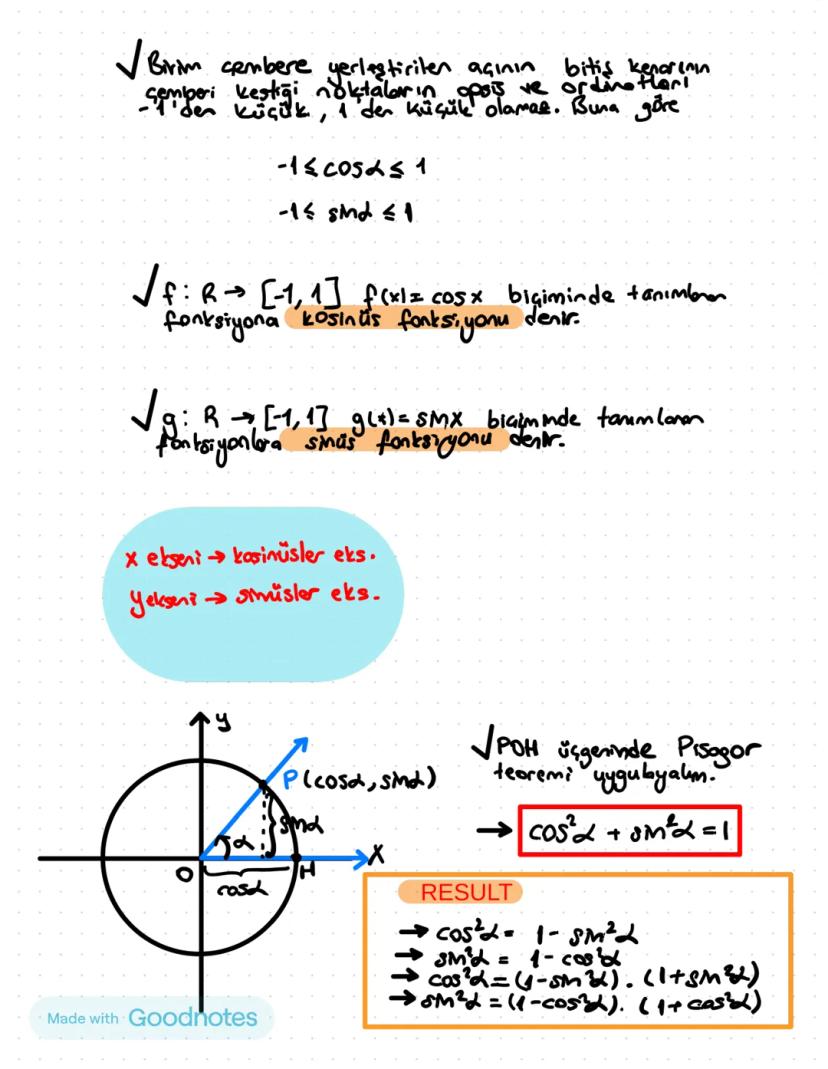 √ Birim çembere yerleştirilen açının bitiş kenarının
çemberi kestiği noktaların apsis ve ordinatları
-1'den küçük, 1'den küçük olamaz. Buna göre
-1 ≤ cosα ≤ 1
-1 ≤ sinα ≤ 1
√ f: R → [-1, 1] f(x) = cosx biçiminde tanımlanan
fonksiyona kosinüs fonksiyonu denir.
√ g: R → [-1, 1] g(x) = sinx biçiminde tanımlanan
fonksiyonlara sinüs fonksiyonu denir.
x ekseni → kosinüsler eks.
y ekseni → sinüsler eks.
y
P(cosα, sinα)
sinα
α
O
H
x
cosα
√ POH üçgeninde Pisagor
teoremi uygulayalım.
→ cos²α + sin²α = 1
RESULT
→ cos²α = 1 - sin²α
→ sin²α = 1 - cos²α
→ cos²α = (1-sin²α) . (1+sin²α)
→ sin²α = (1-cos²α) . (1+cos²α)
Made with Goodnotes